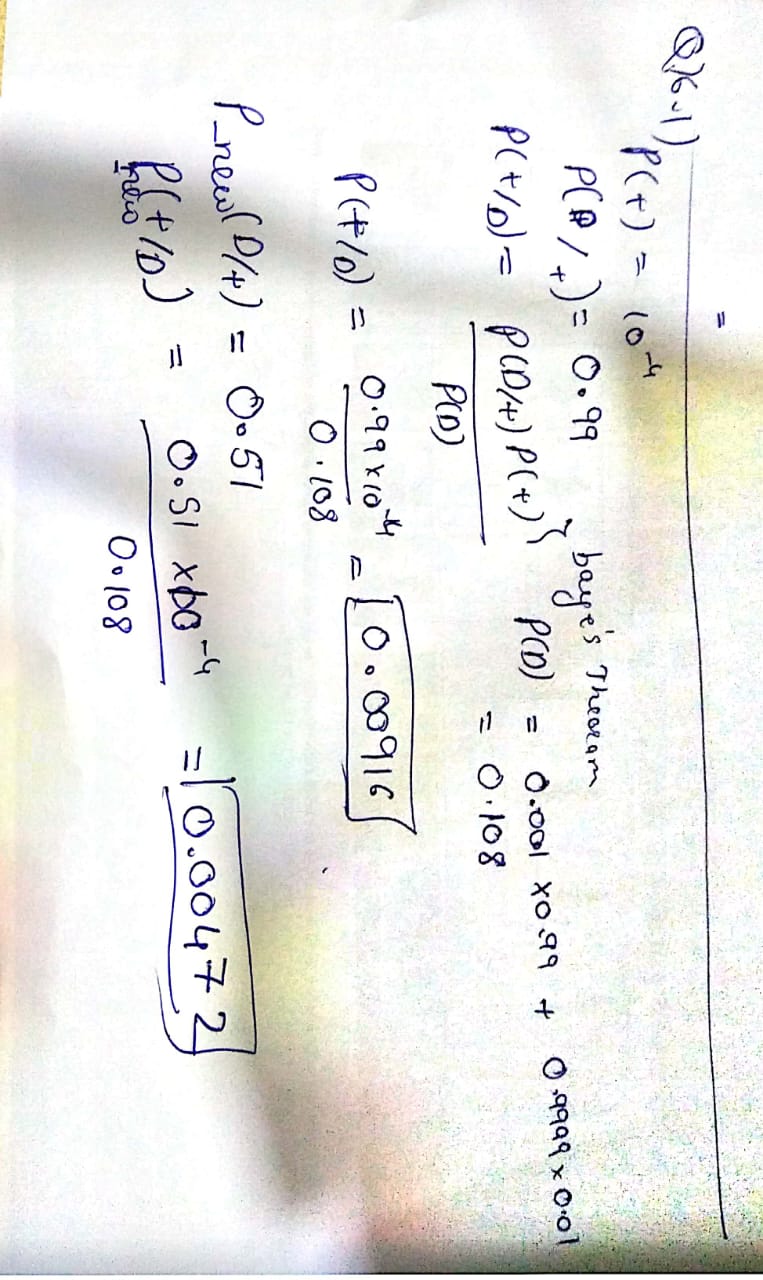 =
Q)6.1) P(+) = 10^-4
P(D/+) = 0.99 } baye's Theoram
P(+/D) = P(D/+) P(+) / P(D)
P(D) = 0.001 x0.99 + 0.9999 x 0.01
= 0.108
P(+/D) = 0.99x10^-4 / 0.108 = 0.00916
P_new(D/+) = 0.51
P_new(+/D) = 0.51 x10^-4 / 0.108 = 0.00472